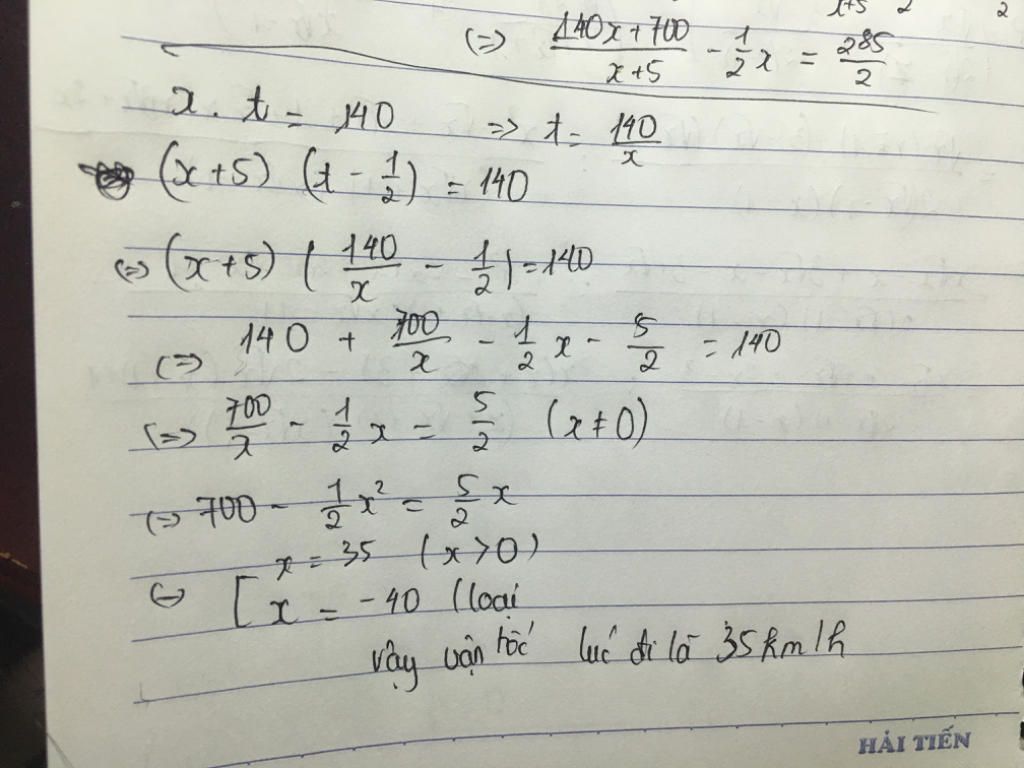 x+5 2 2
(=) \frac{140x+700}{x+5} - \frac{1}{2}x = \frac{285}{2}
x. t = 140 => t = \frac{140}{x}
(x+5) (t - \frac{1}{2}) = 140
(=) (x+5) ( \frac{140}{x} - \frac{1}{2} ) = 140
(=) 140 + \frac{700}{x} - \frac{1}{2}x - \frac{5}{2} = 140
(=) \frac{700}{x} - \frac{1}{2}x = \frac{5}{2} (x ≠ 0)
(=) 700 - \frac{1}{2}x² = \frac{5}{2}x
x = 35 (x > 0)
(=) [ x = -40 (loại
vậy vận tốc lúc đi là 35km/h
HẢI TIẾN